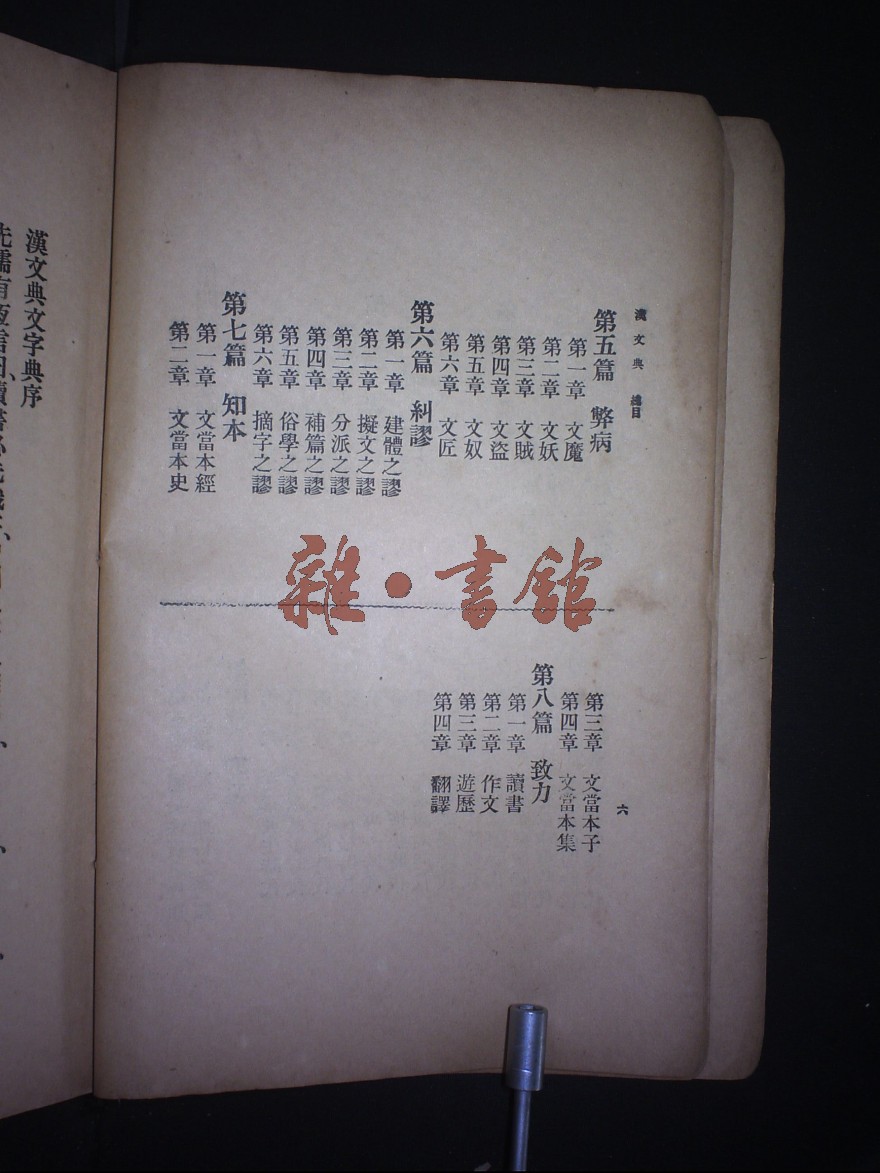 漢文典 總目
第五篇 弊病
第一章 文魔
第二章 文妖
第三章 文賊
第四章 文盜
第五章 文奴
第六章 文匠
第六篇 糾謬
第一章 建體之謬
第二章 擬文之謬
第三章 分派之謬
第四章 補篇之謬
第五章 俗學之謬
第六章 摘字之謬
第七篇 知本
第一章 文當本經
第二章 文當本史
六
第三章 文當本子
第四章 文當本集
第八篇 致力
第一章 讀書
第二章 作文
第三章 遊歷
第四章 翻譯
雜·書館
漢文典文字典序